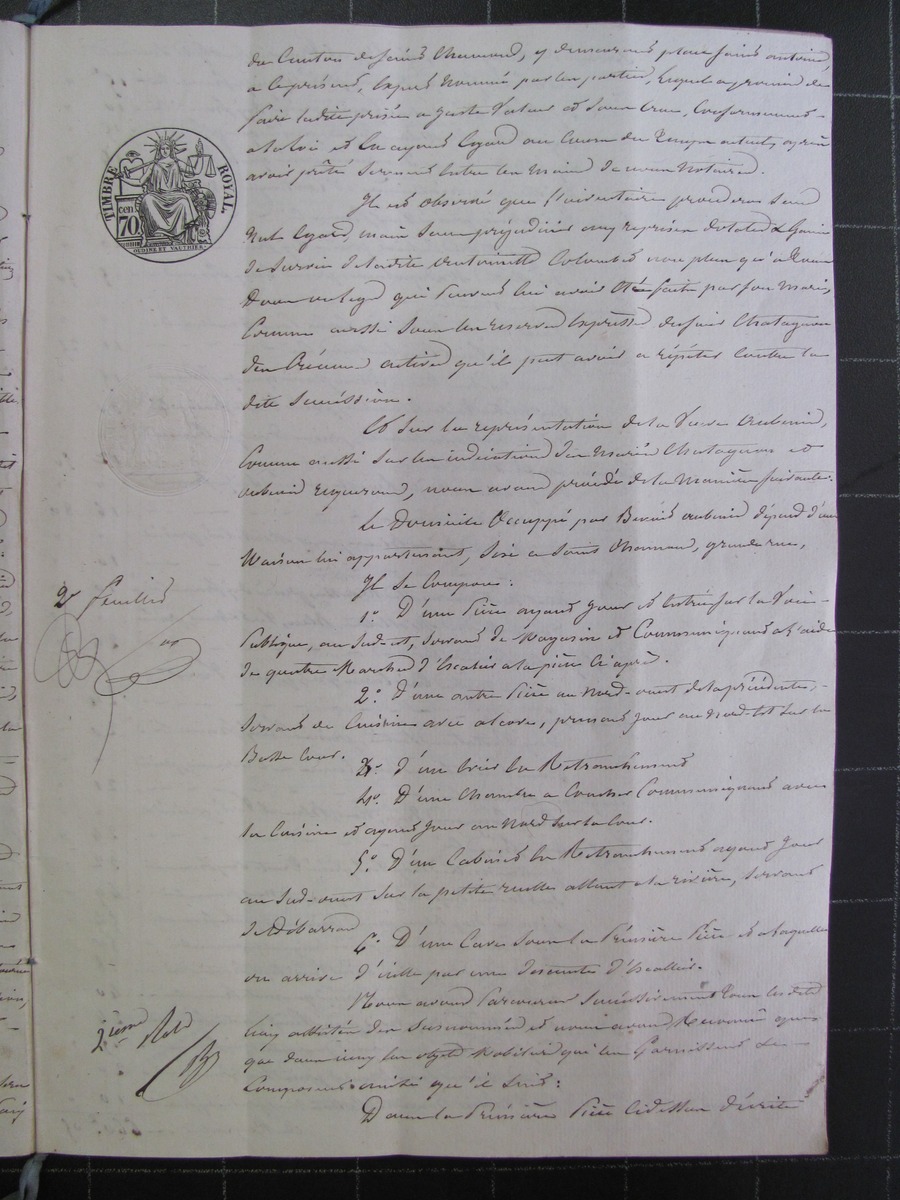 du Canton de Saint Chamond, y demeurant place Saint antoine
a ce présent, Expert Nommé par les parties, lequel a promis de
faire ladite prisée a juste Valeur et Sans Crue, Conformément
a la loi et En ayant Egard au Cours du Temps actuel, après
avoir prêté Serment Entre les Mains de nous Notaires.
TIMBRE ROYAL
cen. 70
OUDINE ET VAUTHIER
Il est observé que l'inventaire procédera Sans
Nul Egard, mais Sans préjudicier aux reprises dotales & Gains
de Survie de ladite Antoinette Colombet non plus qu'à Tous
Dons ou legs qui peuvent lui avoir été faits par son Mari,
Comme aussi Sous les réserves Expresses du Sieur Chatagnon
des Créances actives qu'il peut avoir a répéter Contre la
dite Succession.
Et Sur la représentation de la Veuve
Comme aussi Sur les indications des Mariés Chatagnon et
requérant, nous avons procédé de la Manière suivante:
Le Domicile Occuppé par Benoit dépend d'une
Maison lui appartenant, Sise a Saint Chamond, grande rue,
Il Se Compose:
1.° D'une Pièce ayant Jour et Entrée Sur la Voie
Publique, au Sud-est, Servant de Magasin et Communiquant a l'aide
de quatre Marches d'Escalier a la pièce Ci après.
2.° D'une autre Pièce au Nord-ouest de la précédente,
Servant de Cuisine avec alcove, prenant Jour au Nord-Est Sur la
Basse Cour.
2e feuillet
3.° d'un Evier En Retranchement
4.° D'une Chambre a Coucher Communiquant avec
la Cuisine et ayant Jour au Nord Sur la Cour.
5.° D'un Cabinet En Retranchement ayant Jour
au Sud-ouest Sur la petite ruelle allant a la rivière, Servant
de Débarras
6.° D'une Cave Sous la Première Pièce et a laquelle
on arrive d'icelle par une descente d'Escallier.
Nous avons Parcouru Successivement Tous les dits
lieux assistés des Susnommés et nous avons Reconnu
que dans iceux les objets Mobiliers qui les Garnissent Se
Composent ainsi qu'il Suit:
2ième Role
Dans la Première Pièce Cidessus décrite